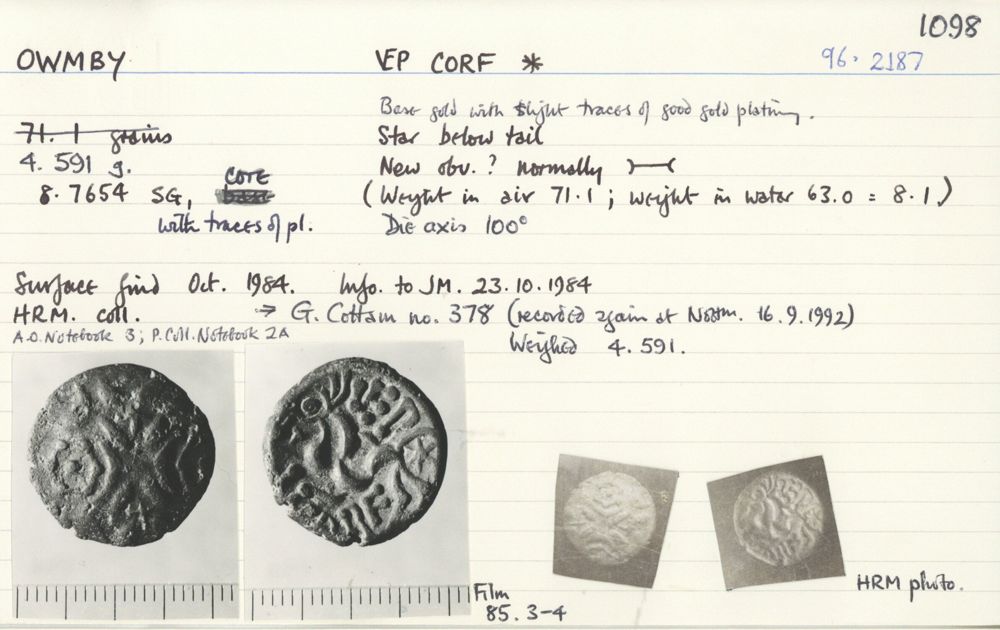 1098
OWMBY VEP CORF * 96. 2187
Base gold with slight traces of good gold plating.
71. 1 grains Star below tail
4. 591 g. New obv. ? normally
CORE
8. 7654 SG, base (Weight in air 71.1 ; weight in water 63.0 = 8.1)
with traces of pl. Die axis 100°
Surface find Oct. 1984. Info. to JM. 23.10.1984
HRM. coll. → G. Cottam no. 378 (recorded again at Nottm. 16.9.1992)
A.O. Notebook 3; P. Coll. Notebook 2A
Weighed 4.591.
HRM photo.
Film
85. 3-4